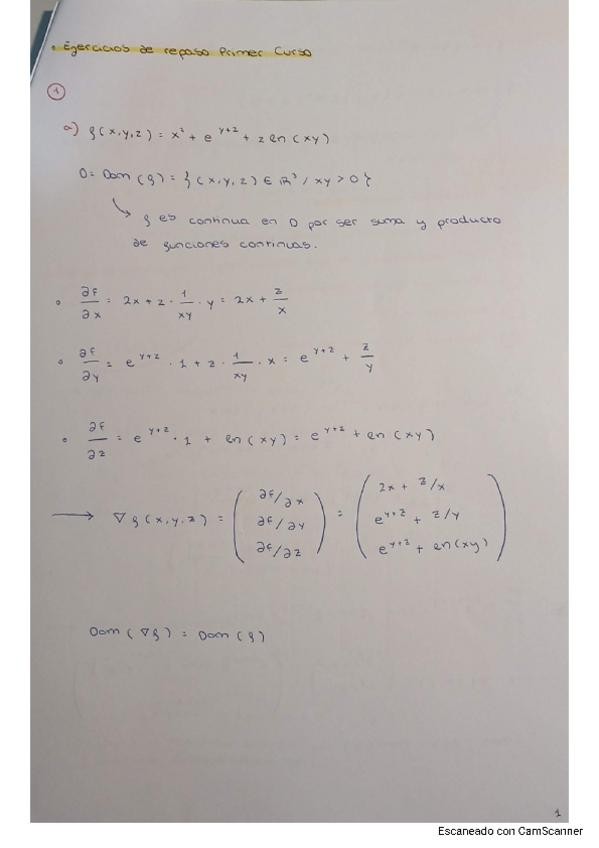 • Ejercicios de repaso Primer Curso
1
a) f(x,y,z) = x² + e^(y+z) + z ln(xy)
D = Dom(f) = {(x,y,z) ∈ ℝ³ / xy > 0}
↳ f es continua en D por ser suma y producto
de funciones continuas.
• ∂f/∂x = 2x + z · 1/xy · y = 2x + z/x
• ∂f/∂y = e^(y+z) · 1 + z · 1/xy · x = e^(y+z) + z/y
• ∂f/∂z = e^(y+z) · 1 + ln(xy) = e^(y+z) + ln(xy)
→ ∇f(x,y,z) = (∂f/∂x ∂f/∂y ∂f/∂z) = (2x + z/x e^(y+z) + z/y e^(y+z) + ln(xy))
Dom(∇f) = Dom(f)
1
Escaneado con CamScanner